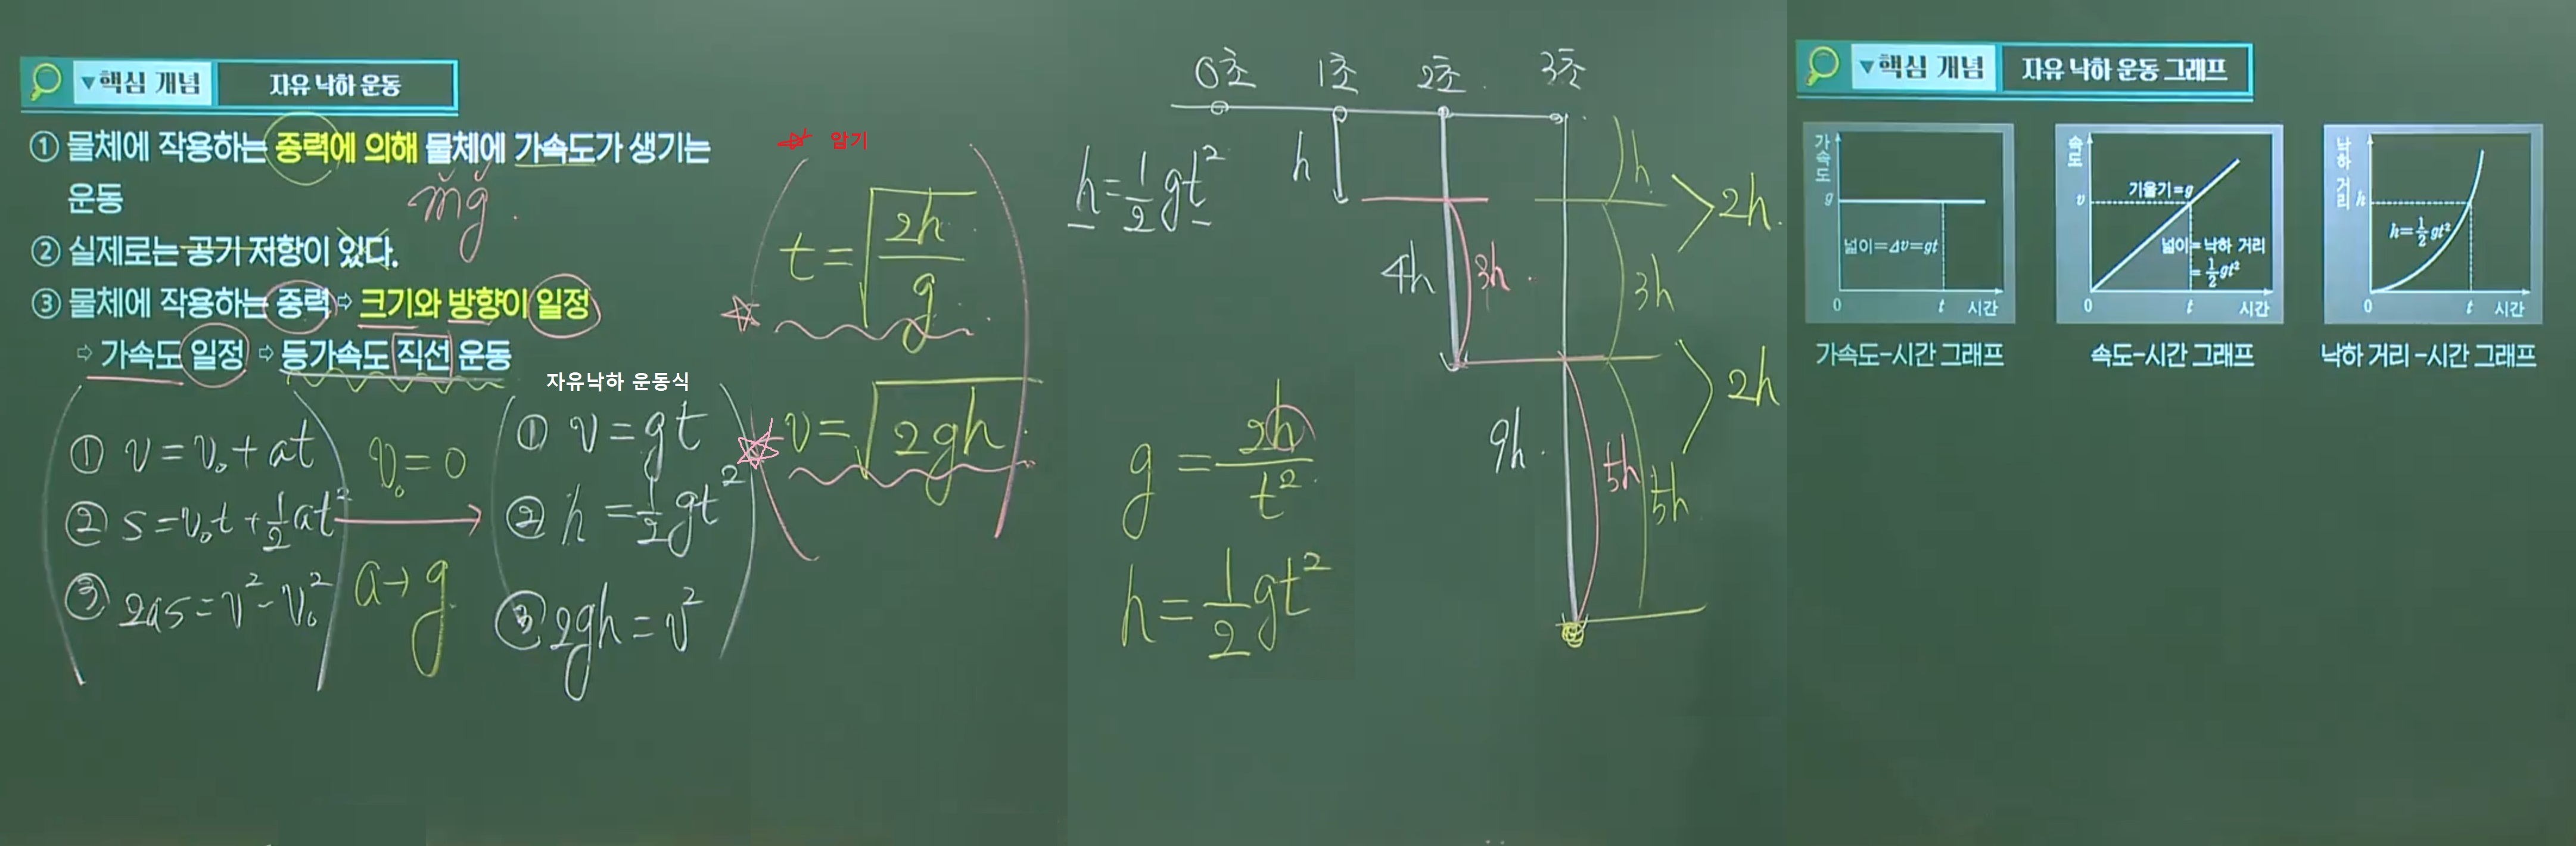 ▼핵심 개념 자유 낙하 운동
① 물체에 작용하는 중력에 의해 물체에 가속도가 생기는
운동
mg
② 실제로는 공기 저항이 있다.
③ 물체에 작용하는 중력 ⇨ 크기와 방향이 일정
⇨ 가속도 일정 ⇨ 등가속도 직선 운동
① v=v₀+at
② s=v₀t+½at²
③ 2as=v²-v₀²
v₀=0
a→g
자유낙하 운동식
① v=gt
② h=½gt²
③ 2gh=v²
암기
t=√(2h/g)
v=√(2gh)
0초 1초 2초 3초
h=½gt²
h
4h 3h
9h 5h
h
3h
5h
2h
2h
g=2h/t²
h=½gt²
▼핵심 개념 자유 낙하 운동 그래프
가속도
g
넓이=Δv=gt
0 t 시간
가속도-시간 그래프
속도
v
기울기=g
넓이=낙하 거리
=½gt²
0 t 시간
속도-시간 그래프
낙하 거리
h
h=½gt²
0 t 시간
낙하 거리 -시간 그래프